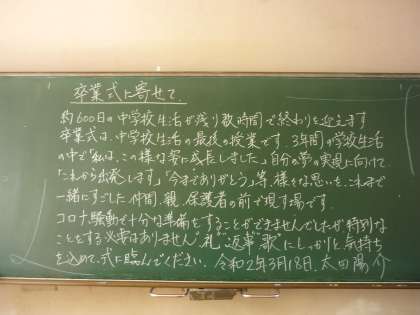 卒業式に寄せて.
約600日の中学校生活が残り数時間で終わりを迎えます
卒業式は、中学校生活の最後の授業です。3年間の学校生活
の中で「私は、この様な姿に成長しました」自分の夢の実現に向けて、
「これから出発します」「今までありがとう」等、様々な思いを、これまで
一緒にすごした仲間、親、保護者の前で現す場です。
コロナ騒動で十分な準備をすることができませんでしたが特別な
ことをする必要はありません“礼”“返事”“歌”にしっかりと気持ち
を込めて、式に臨んでください. 令和2年3月18日. 太田陽介